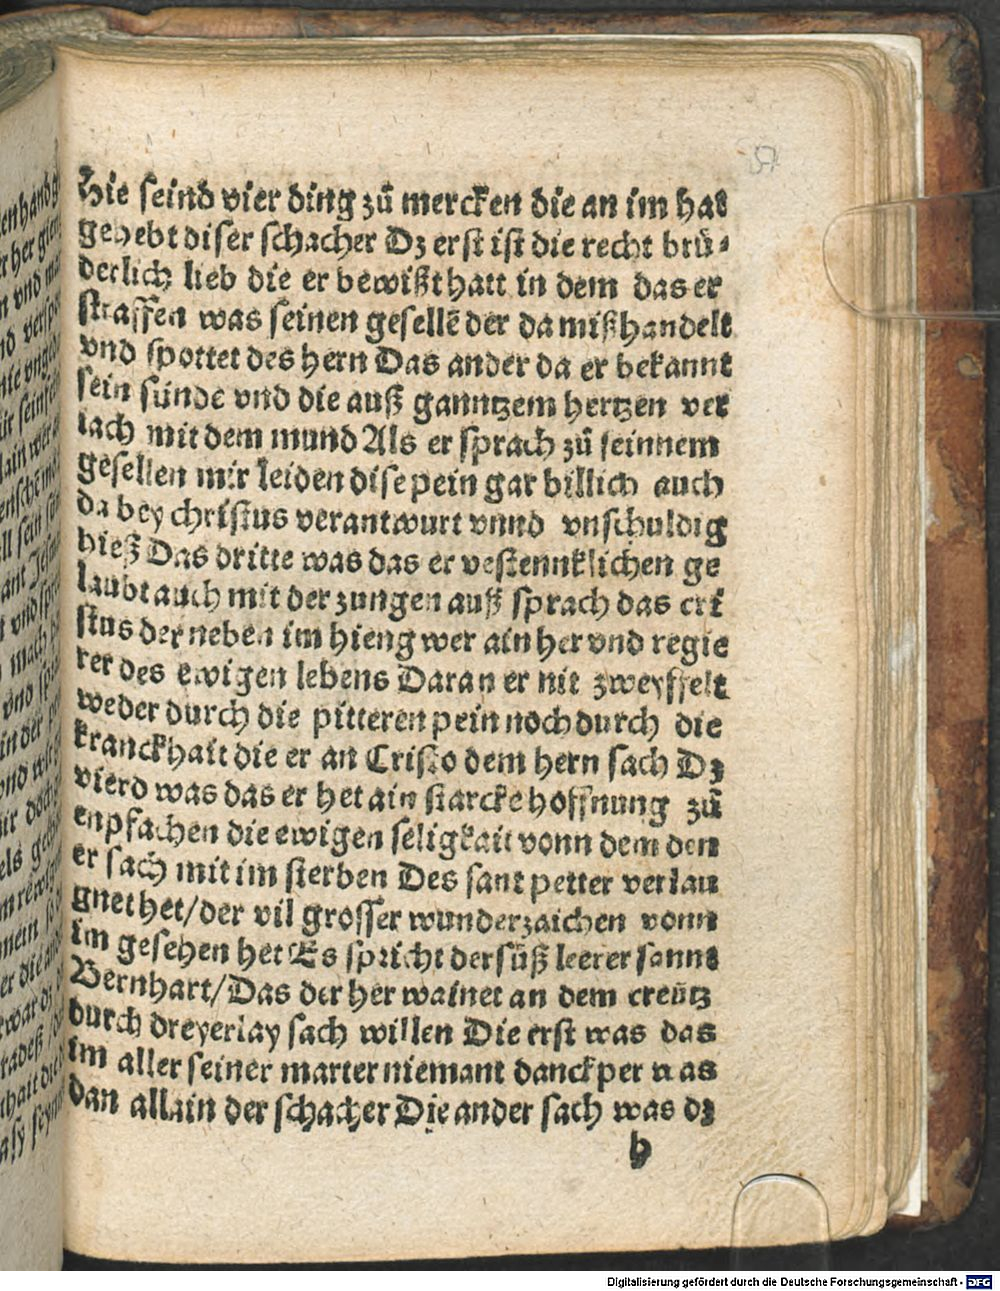 57
Hie seind vier ding zů mercken die an im hat
gehebt diser schacher Dz erst ist die recht brů⸗
derlich lieb die er bewißt hatt in dem das er
straffen was seinen gesellē der da mißhandelt
vnd spottet des hern Das ander da er bekannt
sein sünde vnd die auß ganntzem hertzen ver
iach mit dem mund Als er sprach zů seinnem
gesellen mir leiden dise pein gar billich auch
da bey christus verantwurt vnnd vnschuldig
hieß Das dritte was das er vestennklichen ge
laubt auch mit der zungen auß sprach das cri
stus der neben im hieng wer ain her vnd regie
rer des ewigen lebens Daran er nit zweyffelt
weder durch die pitteren pein noch durch die
kranckhait die er an Cristo dem hern sach Dz
vierd was das er het ain starcke hoffnung zů
enpfachen die ewigen seligkait vonn dem den
er sach mit im sterben Des sant petter verlau
gnet het/der vil grosser wunderzaichen vonn
im gesehen het Es spricht der süß leerer sannt
Bernhart/Das der her wainet an dem creütz
durch dreyerlay sach willen Die erst was das
im aller seiner marter niemant danckper was
dan allain der schacher Die ander sach was dz
h
Digitalisierung gefördert durch die Deutsche Forschungsgemeinschaft - DFG